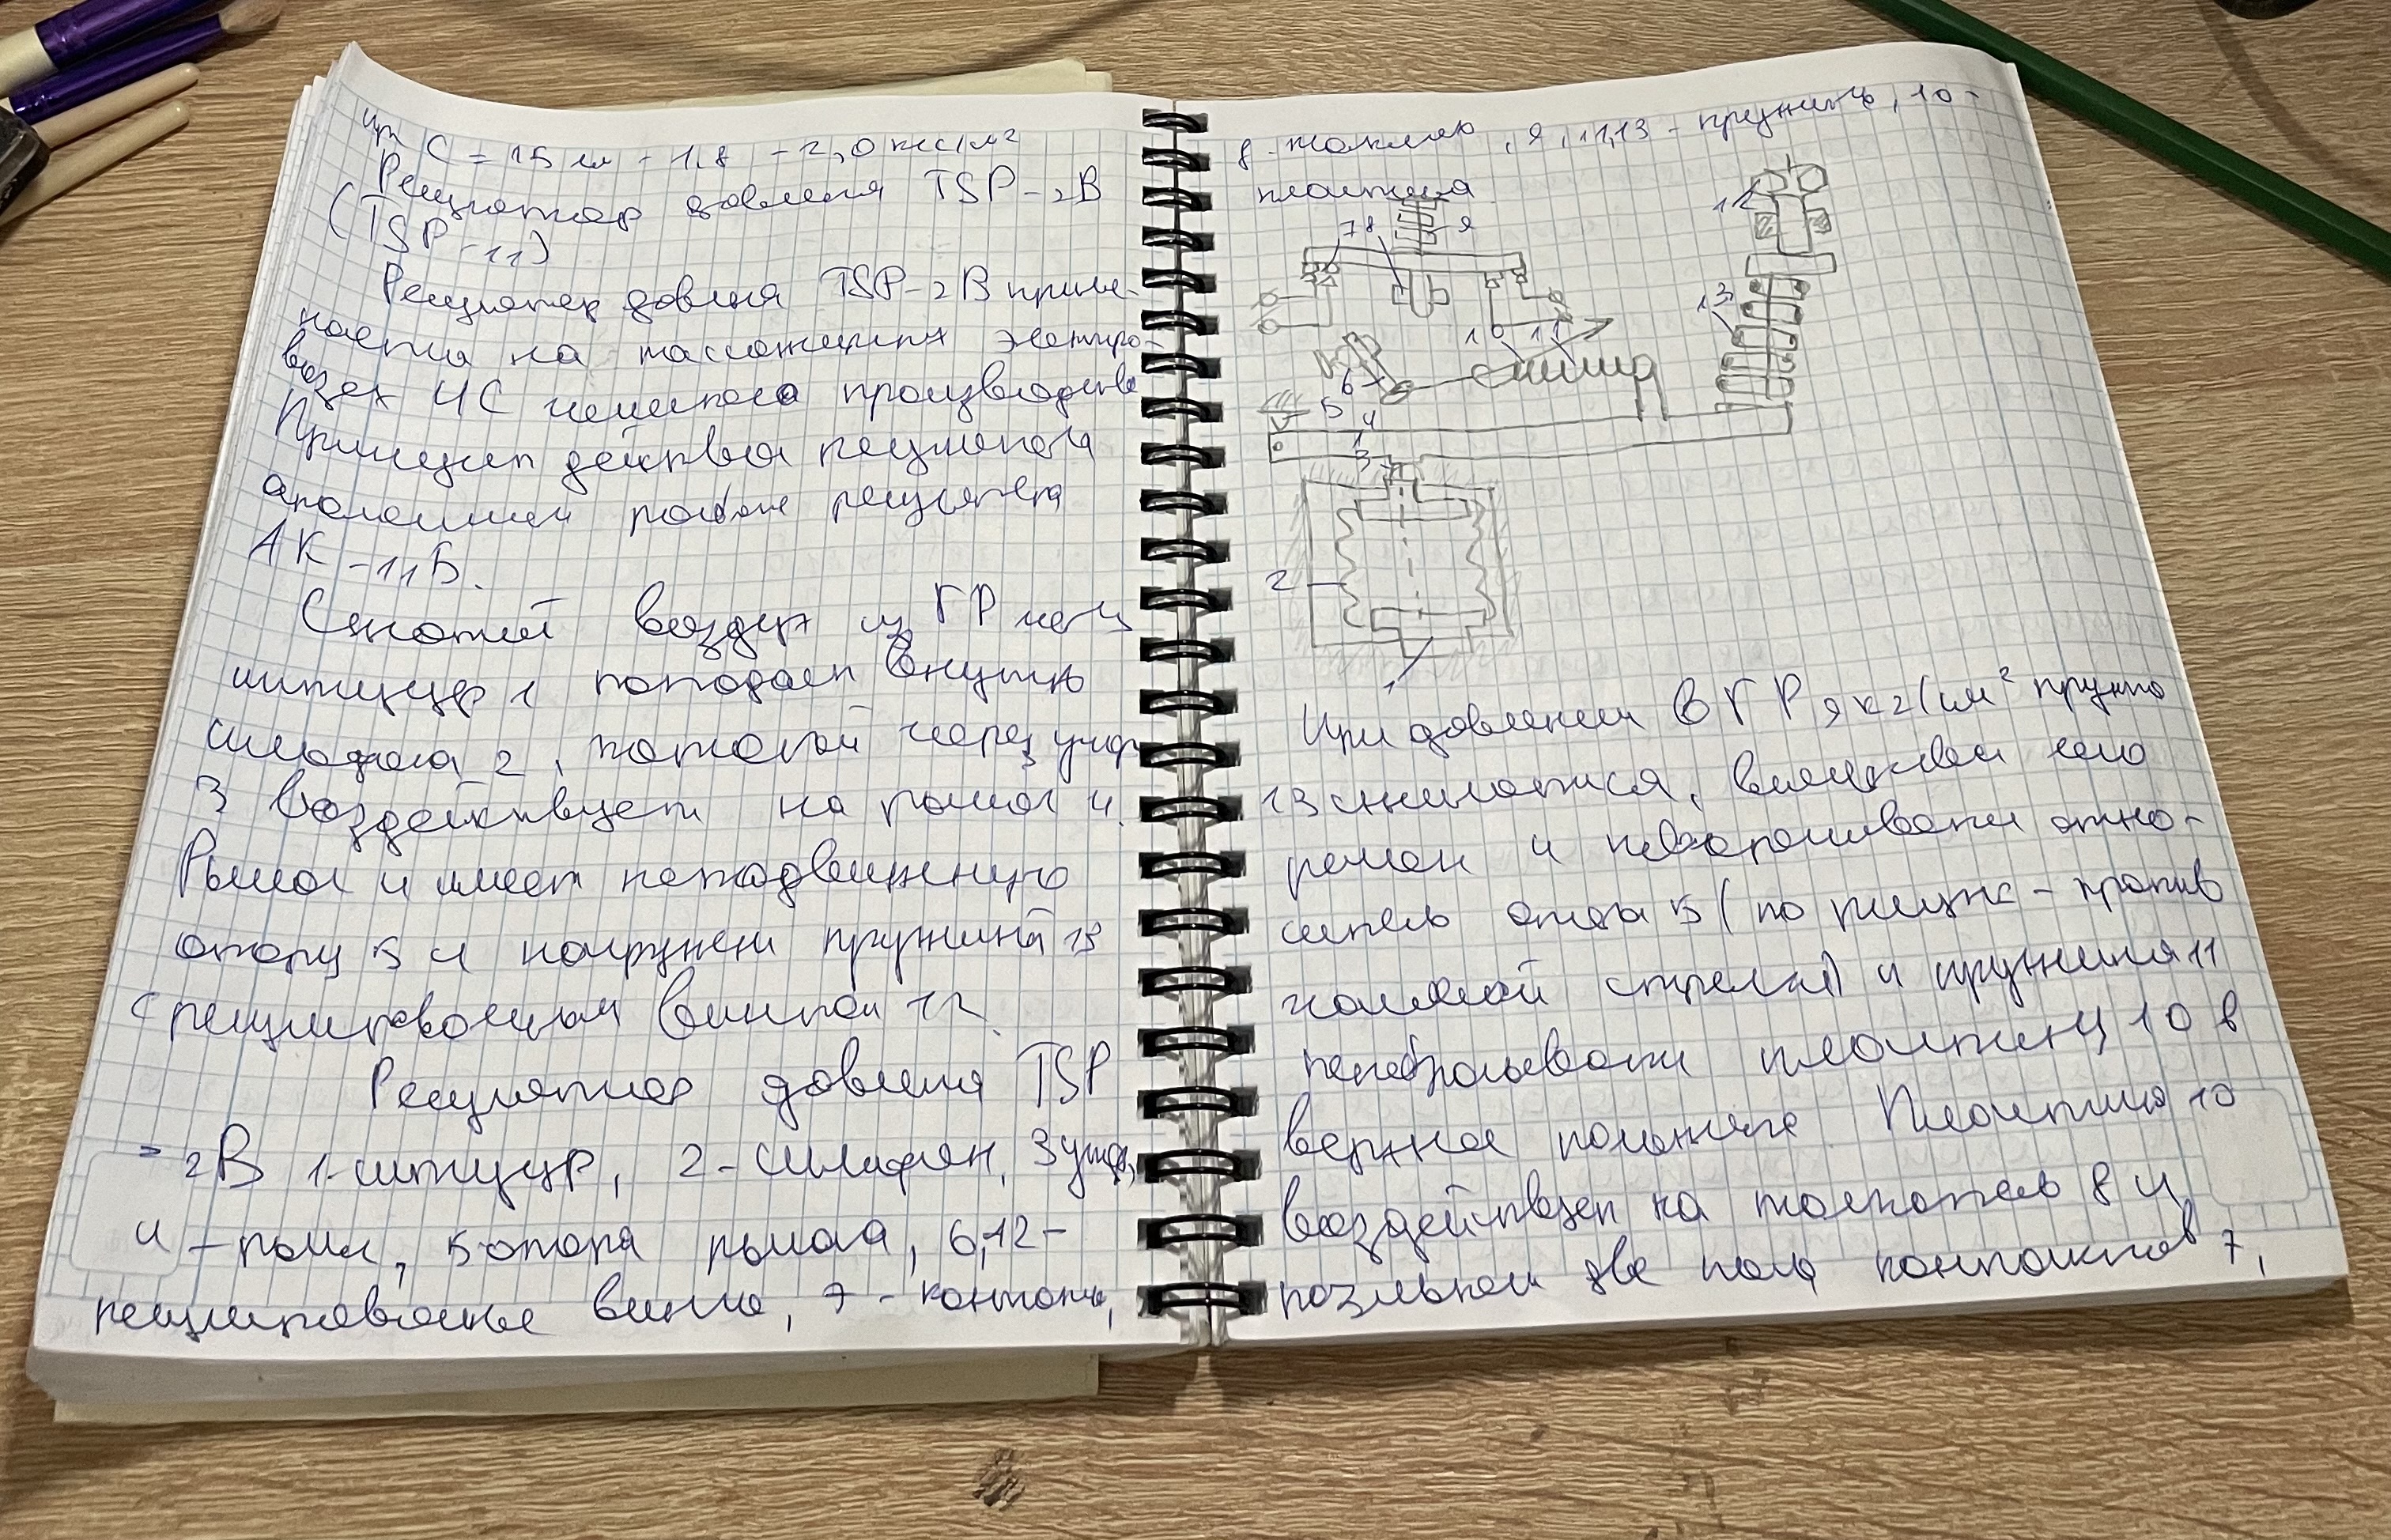 при С = 15 мм - 1,8 - 2,0 кгс/см²
Регулятор давления TSP-2B
(TSP-11)
Регулятор давления TSP-2B приме-
няется на пассажирских электро-
возах ЧС чешского производства
Принцип действия регулятора
аналогичен работе регулятора
АК-11Б.
Сжатый воздух из ГР через
штуцер 1 попадает внутрь
сильфона 2, который через упор
3 воздействует на рычаг 4.
Рычаг 4 имеет неподвижную
опору 5 и нагружен пружиной 13
с регулировочным винтом 12.
Регулятор давления TSP
-2B 1-штуцер, 2-сильфон, 3упор,
4 - рычаг, 5-опора рычага, 6,12-
регулировочные винты, 7 - контакты,
8- , 9, 11,13 - пружины, 10-
пластина
7 8 9
12
13
10 11
6
5
4
3
2
1
При давлении в ГР 9 кг/см² пружина
13 сжимается, вследствии чего
рычаг 4 поворачивается отно-
ситель опоры 5 (по рисунке - против
часовой стрелки) и пружиня 11
перебрасывает пластину 10 в
верхнее положение. Пластина 10
воздействует на толкатель 8 и
размыкает две пары контактов 7,